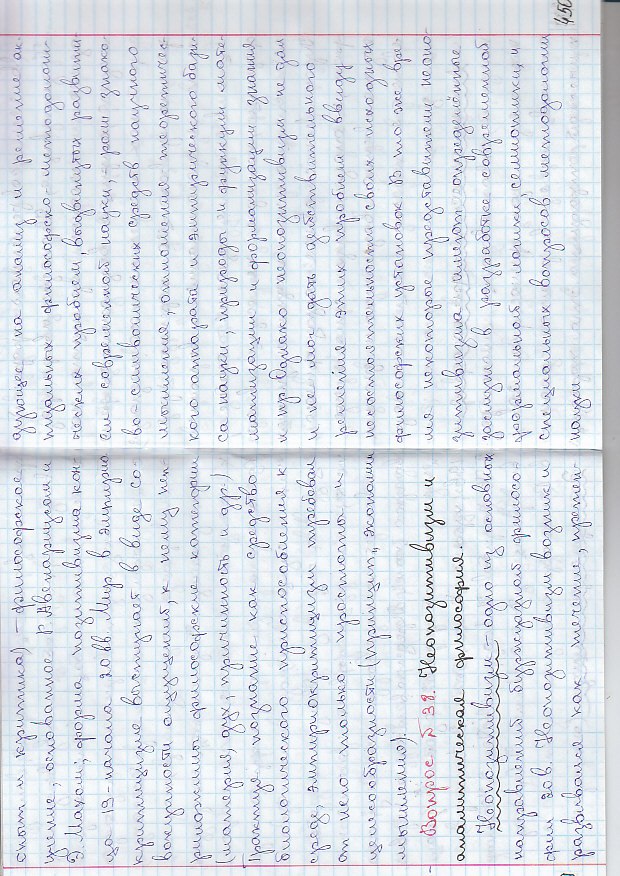 опыт и критика) – философское
учение, основанное Р. Авенариусом и
Э. Махом; форма позитивизма кон-
ца 19 – начала 20 вв. Мир в эмпирио-
критицизме выступает в виде со-
вокупности ощущений, к нему неп-
риложимы философские категории
(материя, дух, причинность и др.)
Трактуя познание как средство
биологического приспособления к
среде, эмпириокритицизм требовал
от него только простоты и
целесообразности (принцип „экономии
мышления).
Вопрос № 38. Неопозитивизм и
аналитическая философия.
Неопозитивизм – одно из основных
направлений буржуазной филосо-
фии 20 в. Неопозитивизм возник и
развивался как течение, претен-
дующее на анализ и решение ак-
туальных философско-методологи-
ческих проблем, выдвинутых развити-
ем современной науки, – роли знако-
во-символических средств научного
мышления, отношения теоретичес-
кого аппарата и эмпирического бази-
са науки, природы и функции мате-
матизации и формализации знания
и пр. Однако неопозитивизм не дал
и не мог дать действительного
решения этих проблем ввиду
несостоятельности своих исходных
философских установок. В то же вре-
мя некоторые представители неопо-
зитивизма имеют определённые
заслуги в разработке современной
формальной логики, семиотики, и
специальных вопросов методологии
науки.
450